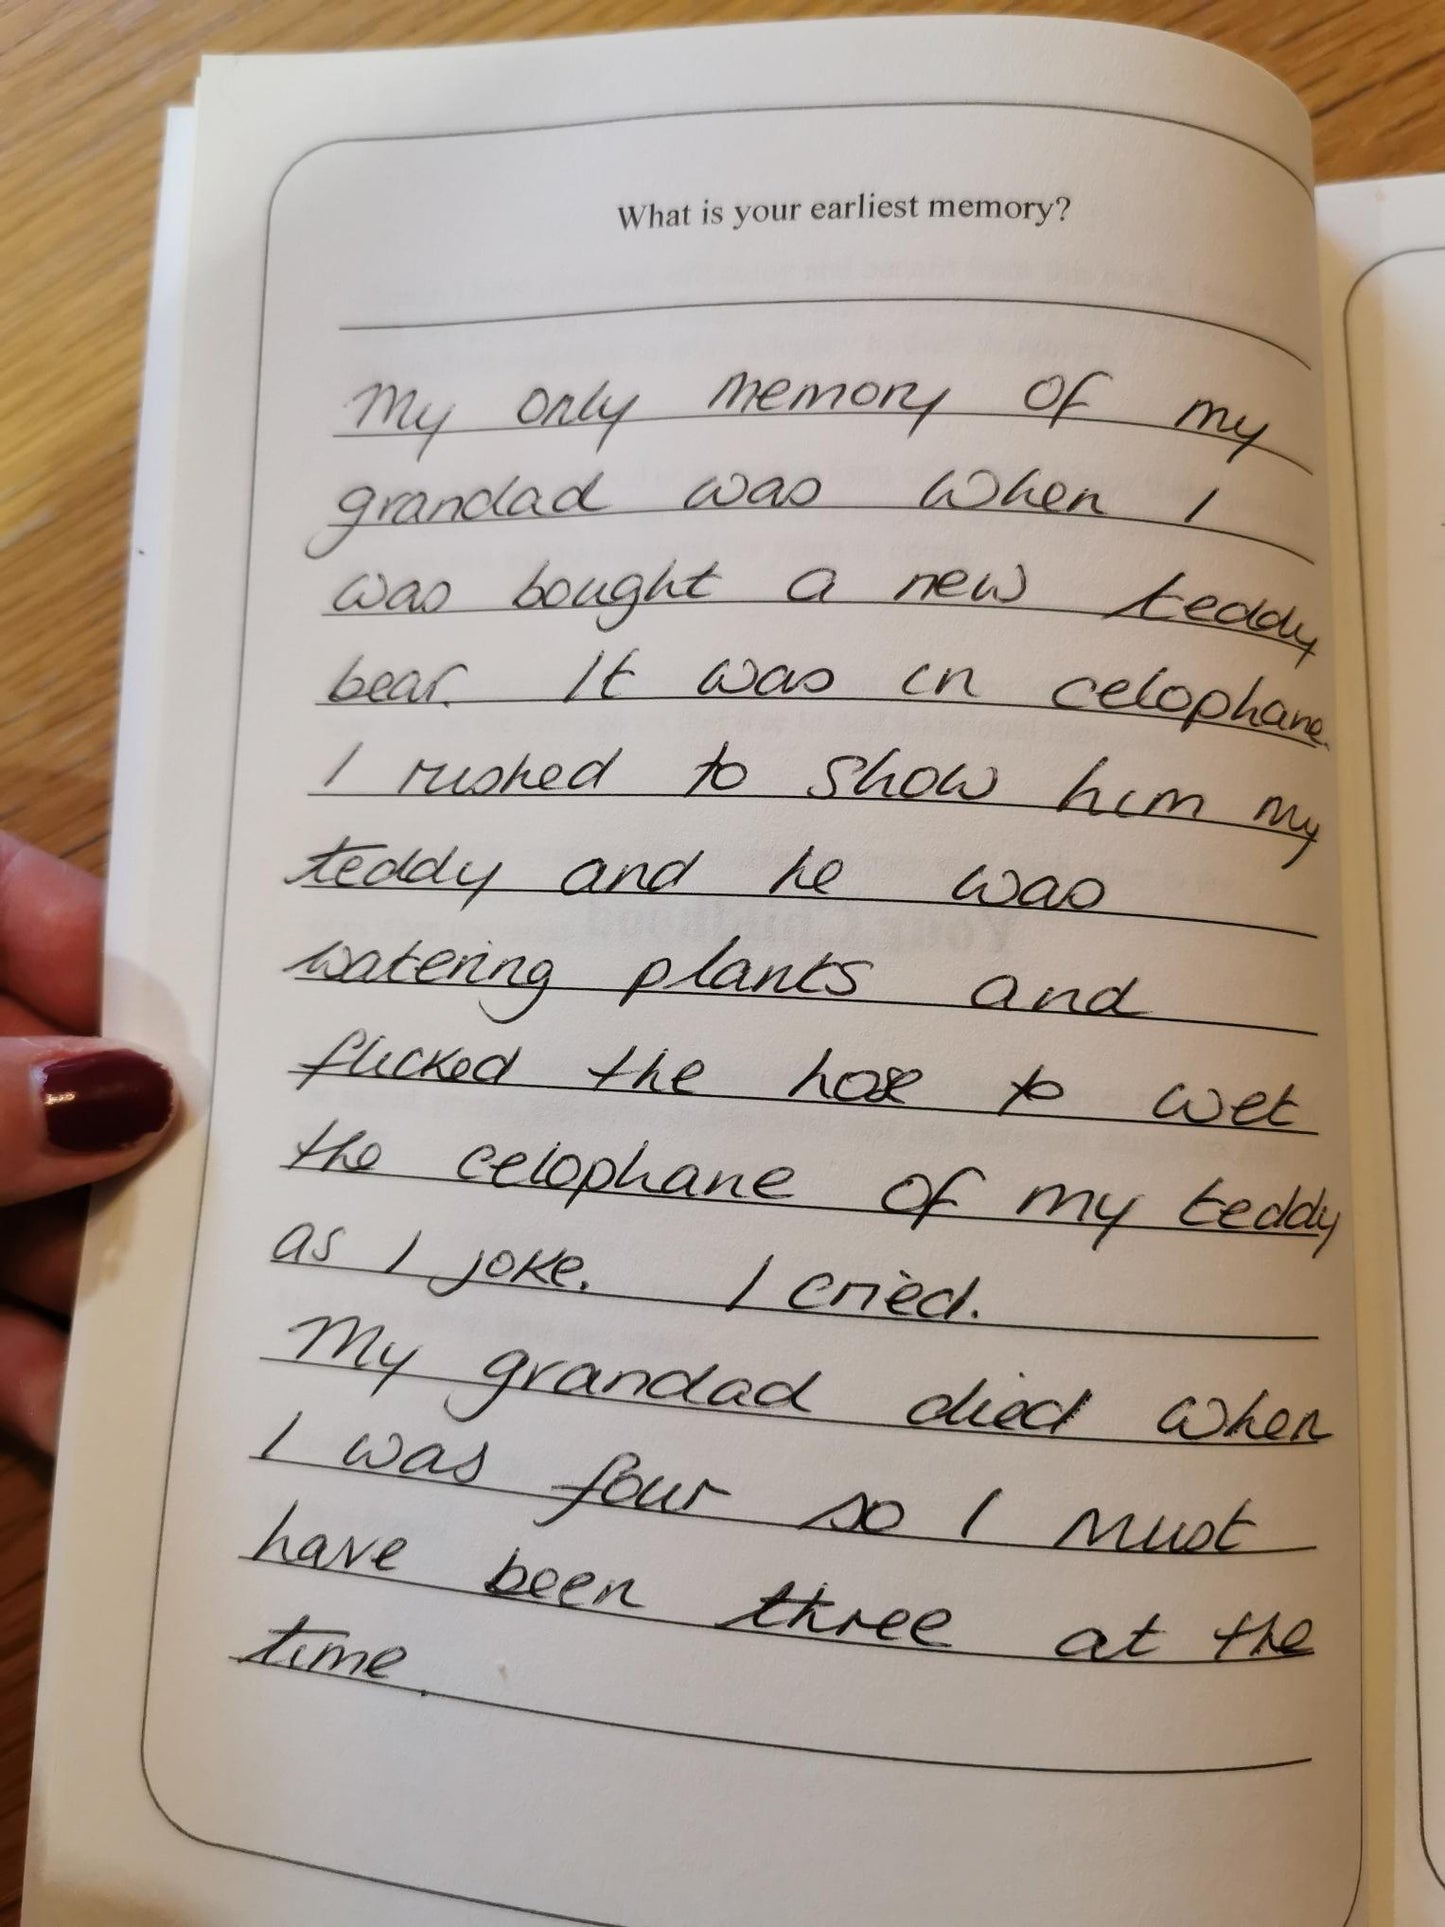 What is your earliest memory?
My only memory of my
grandad was when I
was bought a new teddy
bear. It was in celophane.
I rushed to show him my
teddy and he was
watering plants and
flicked the hose to wet
the celophane of my teddy
as I joke. I cried.
My grandad died when
I was four so I must
have been three at the
time.